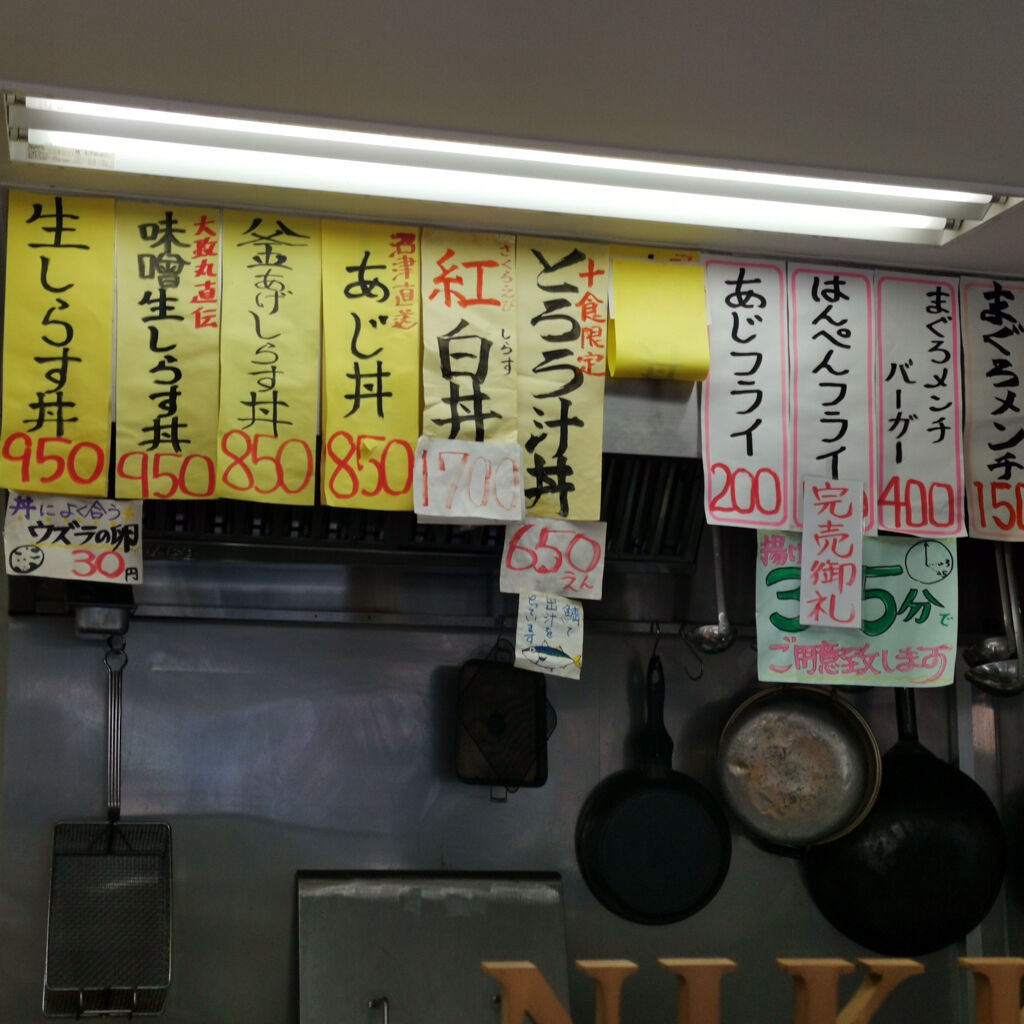 生しらす丼
950
大政丸直伝
味噌生しらす丼
950
釜あげしらす丼
850
沼津直送
あじ丼
850
さくらえび
しらす
紅白丼
1700
十食限定
とろろ汁丼
650
えん
鯖で
出汁を
とています
あじフライ
200
はんぺんフライ
完売御礼
まぐろメンチ
バーガー
400
まぐろメンチ
150
丼によく合う
ウズラの卵
30円
揚げ
分で
ご用意致します
NIK